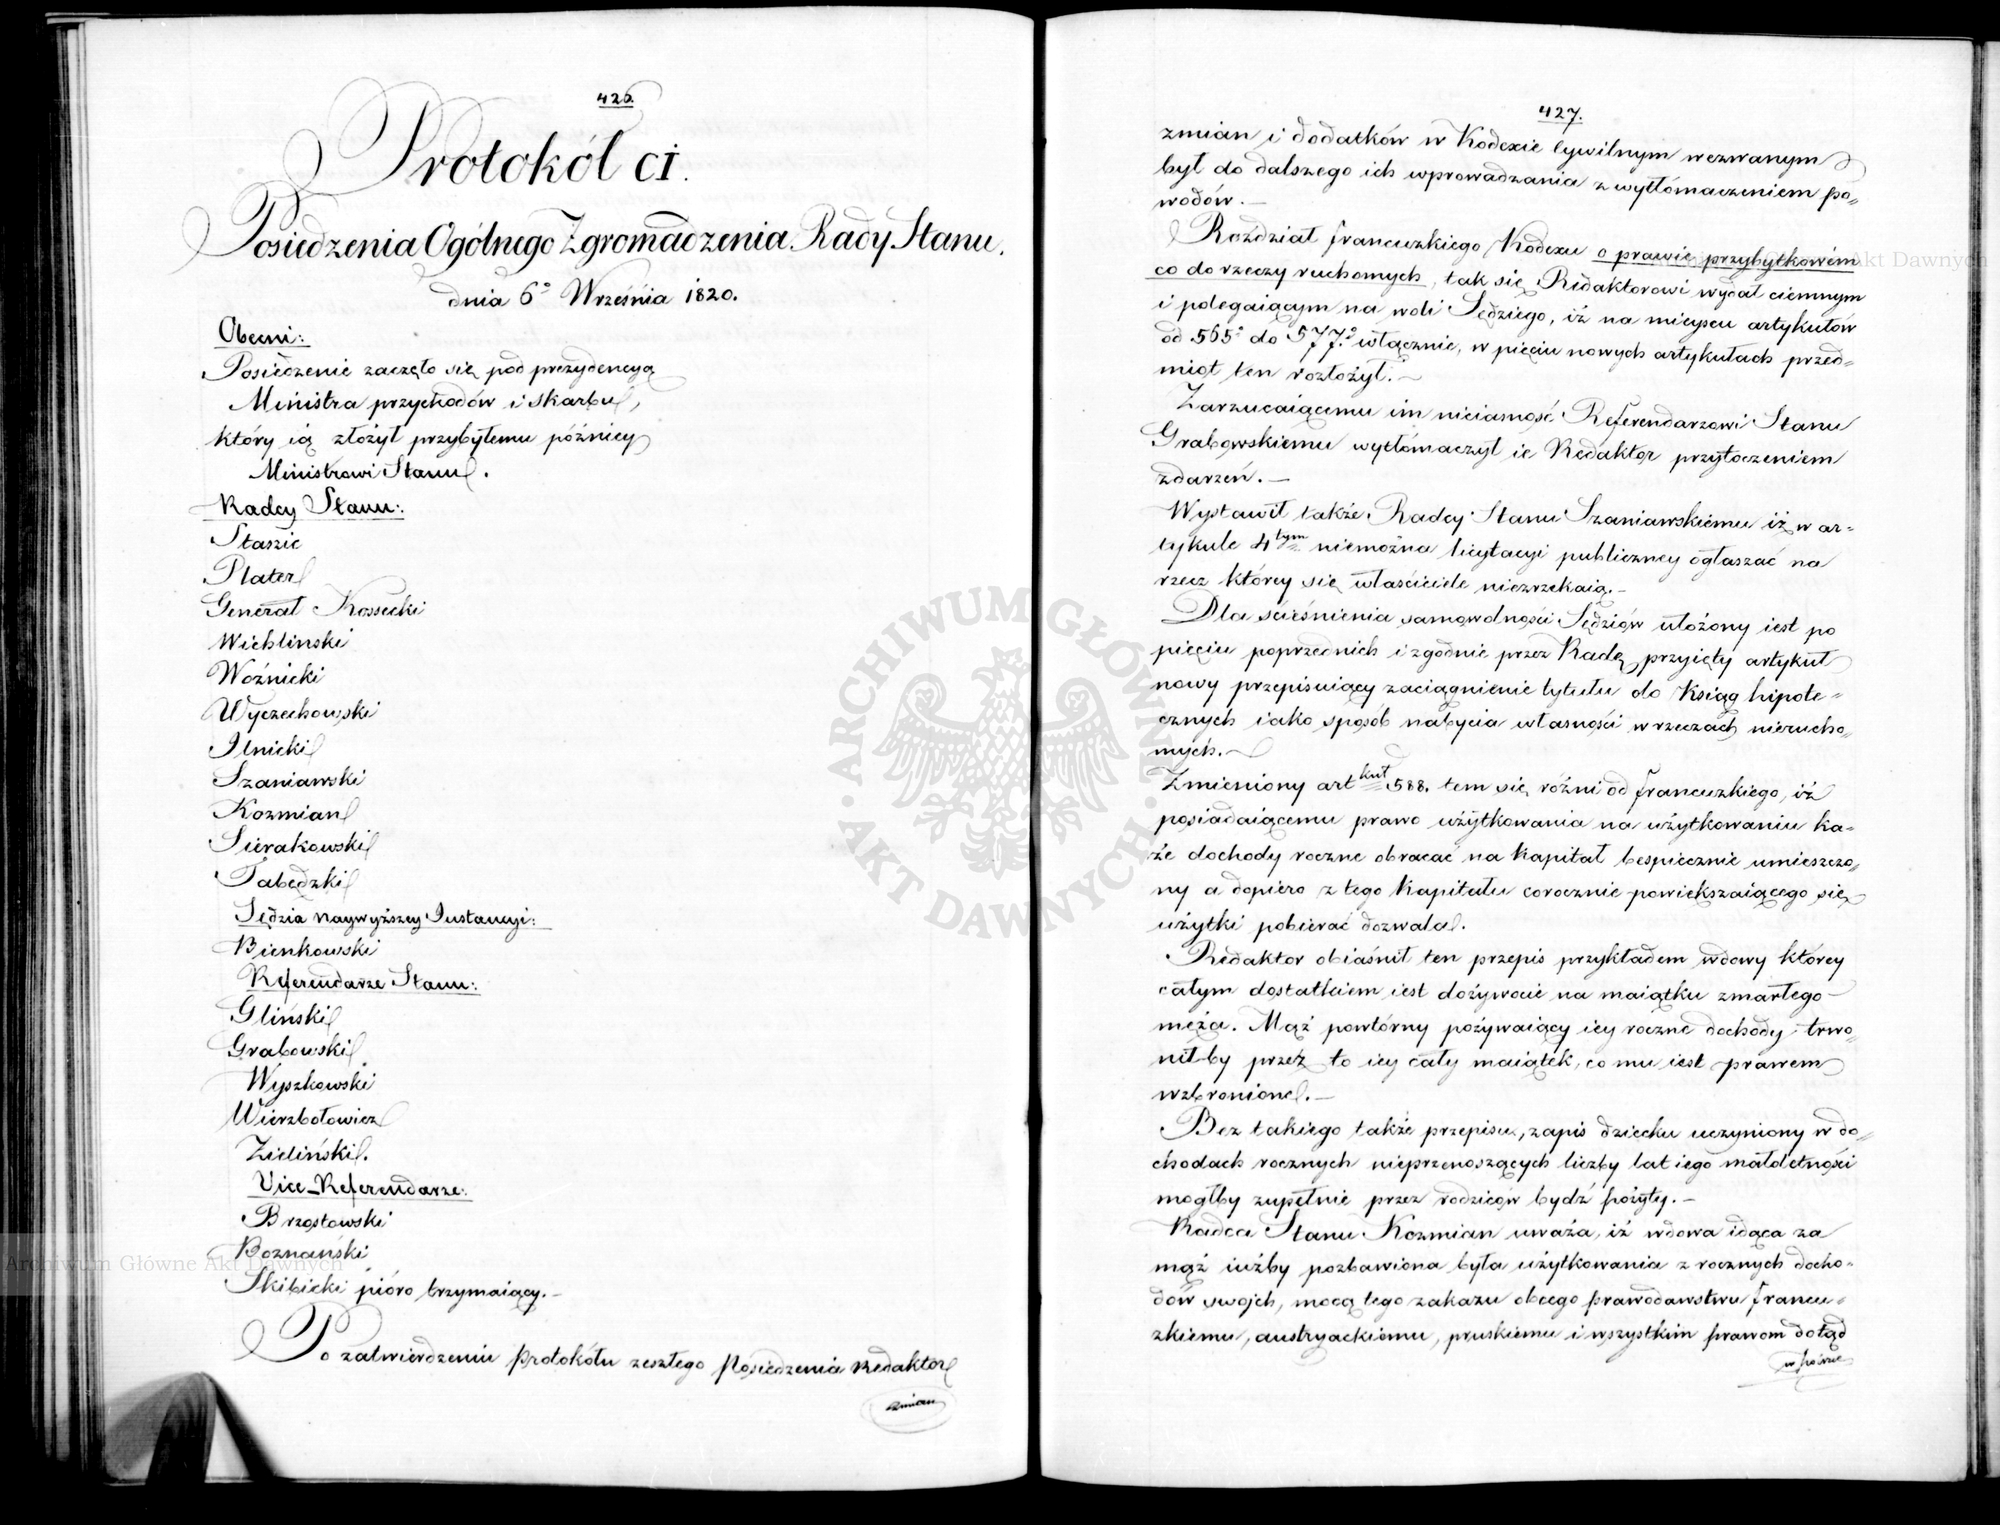 426.
Protokól CI.
Posiedzenia Ogólnego Zgromadzenia Rady Stanu.
dnia 6º Września 1820.
Obecni:
Posiedzenie zaczęło się pod prezydencyą
Ministra przychodów i skarbu,
który ią złożył przybyłemu późniey
Ministrowi Stanu.
Radcy Stanu:
Staszic
Plater
Generał Kossecki
Wichlinski
Woźnicki
Wyczechowski
Ilnicki
Szaniawski
Kozmian
Sierakowski
Łabędzki
Sędzia naywyższey Instancyi:
Bienkowski
Referendarze Stanu:
Gliński
Grabowski
Wyszkowski
Wierzbołowicz
Zieliński.
Vice-Referendarze:
Brzostowski
Boznański
Skibicki pióro trzymaiący.-
Po zatwierdzeniu protokółu zeszłego Posiedzenia Redaktor
zmian
427.
zmian i dodatków w Kodexie Cywilnym wezwanym
był do dalszego ich wprowadzania z wytłómaczeniem po„
wodów.-
Rozdział francuzkiego Kodexu o prawie przybytkowém
co do rzeczy ruchomych, tak się Redaktorowi wydał ciemnym
i polegaiącym na woli Sędziego, iż na mieyscu artykułów
od 565º do 577.º włącznie, w pięciu nowych artykułach przed=
miot ten rozłożył.-
Zarzucaiącemu im nieiasność Referendarzowi Stanu
Grabowskiemu wytłómaczył ie Redaktor przytoczeniem
zdarzeń.-
Wystawił także Radcy Stanu Szaniawskiemu iż w ar=
tykule 4tym niemożna licytacyi publiczney ogłaszać na
rzecz którey się właściciele niezrzekaią.-
Dla ścieśnienia samowolności Sędziów ułożony iest po
pięciu poprzednich i zgodnie przez Radę przyięty artykuł
nowy przepisuiący zaciągnienie tytułu do Ksiąg hipote=
cznych iako sposób nabycia własności w rzeczach nierucho„
mych.-
Zmieniony artkuł 588. tem się różni od francuzkiego, iż
posiadaiącemu prawo użytkowania na użytkowaniu ka=
że dochody roczne obracać na kapitał bespiecznie umieszczo„
ny a dopiero z tego kapitału corocznie powiekszaiącego się
użytki pobierać dozwala.
Redaktor obiaśnił ten przepis przykładem wdowy którey
całym dostatkiem iest dożywocie na maiątku zmarłego
męża. Mąż powtórny pożywaiący iey roczne dochody trwo„
niłby przez to iey cały maiątek, co mu iest prawem
wzbronione.-
Bez takiego także przepisu, zapis dziecku uczyniony w do„
chodach rocznych nieprzenoszących liczby lat iego małoletności
mógłby zupełnie przez rodziców bydź pożyty.-
Radca Stanu Kozmian uważa, iż wdowa idąca za
mąż iużby pozbawiona była użytkowania z rocznych docho=
dów swoich, mocą tego zakazu obcego prawodawstwu francu=
zkiemu, austryackiemu, pruskiemu i wszystkim prawom dotąd
ARCHIWUM GŁÓWNE AKT DAWNYCH
Archiwum Główne Akt Dawnych
Akt Dawnych